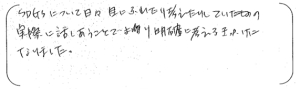 SDGsについて日々目にふれたり考えたりしていたものの
実際に話しあうことでより明確に考えるきっかけに
なりました。